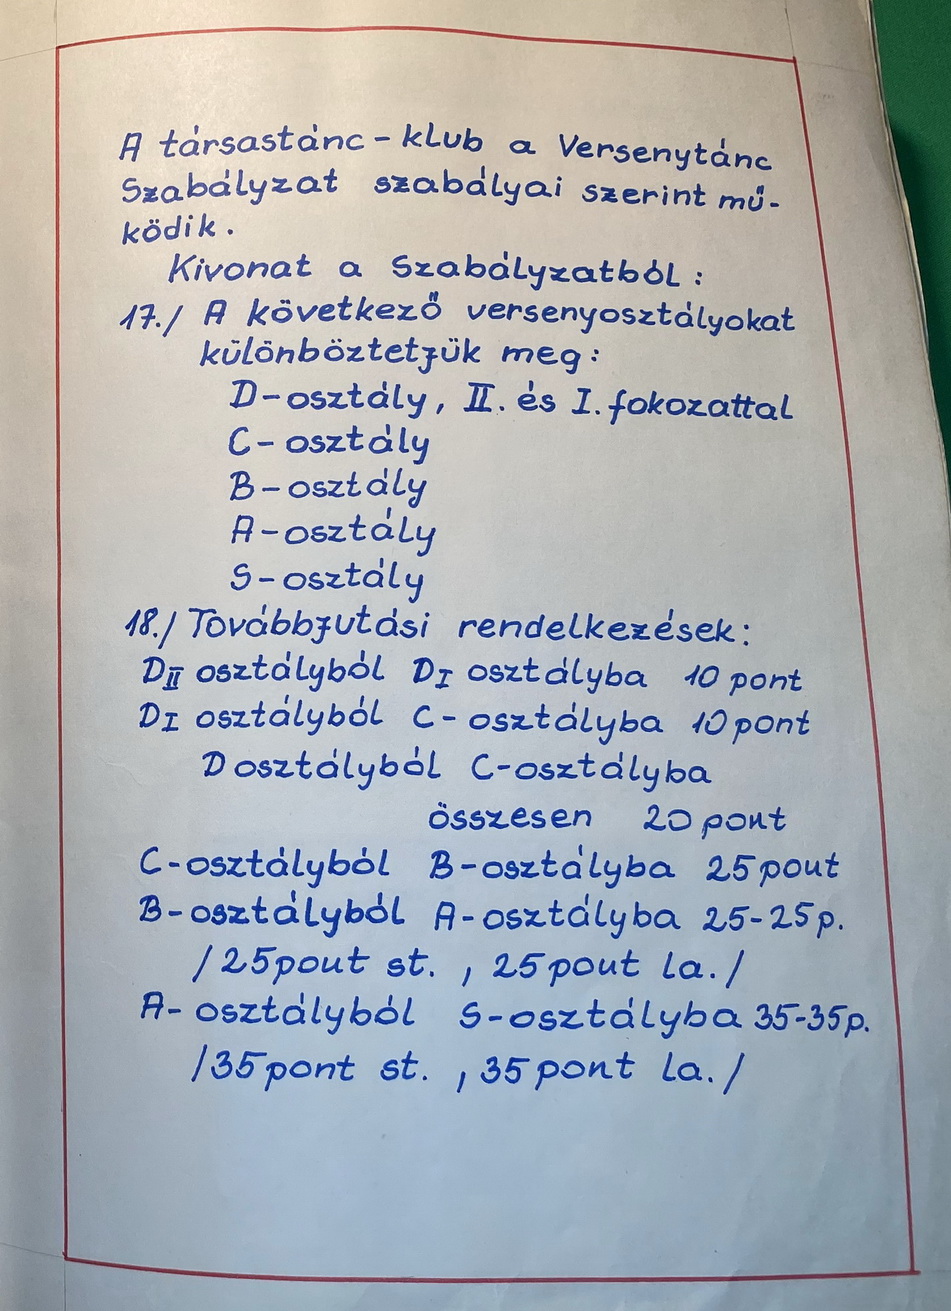 A társastánc - klub a Versenytánc
Szabályzat szabályai szerint mű-
ködik.
Kivonat a Szabályzatból :
17./ A következő versenyosztályokat
különböztetjük meg :
D-osztály, II. és I. fokozattal
C - osztály
B - osztály
A - osztály
S - osztály
18./ Továbbjutási rendelkezések :
DII osztályból DI osztályba 10 pont
DI osztályból C - osztályba 10 pont
D osztályból C-osztályba
összesen 20 pont
C-osztályból B-osztályba 25 pont
B-osztályból A-osztályba 25-25p.
/ 25 pont st. , 25 pont la. /
A- osztályból S-osztályba 35-35p.
/ 35 pont st. , 35 pont la. /